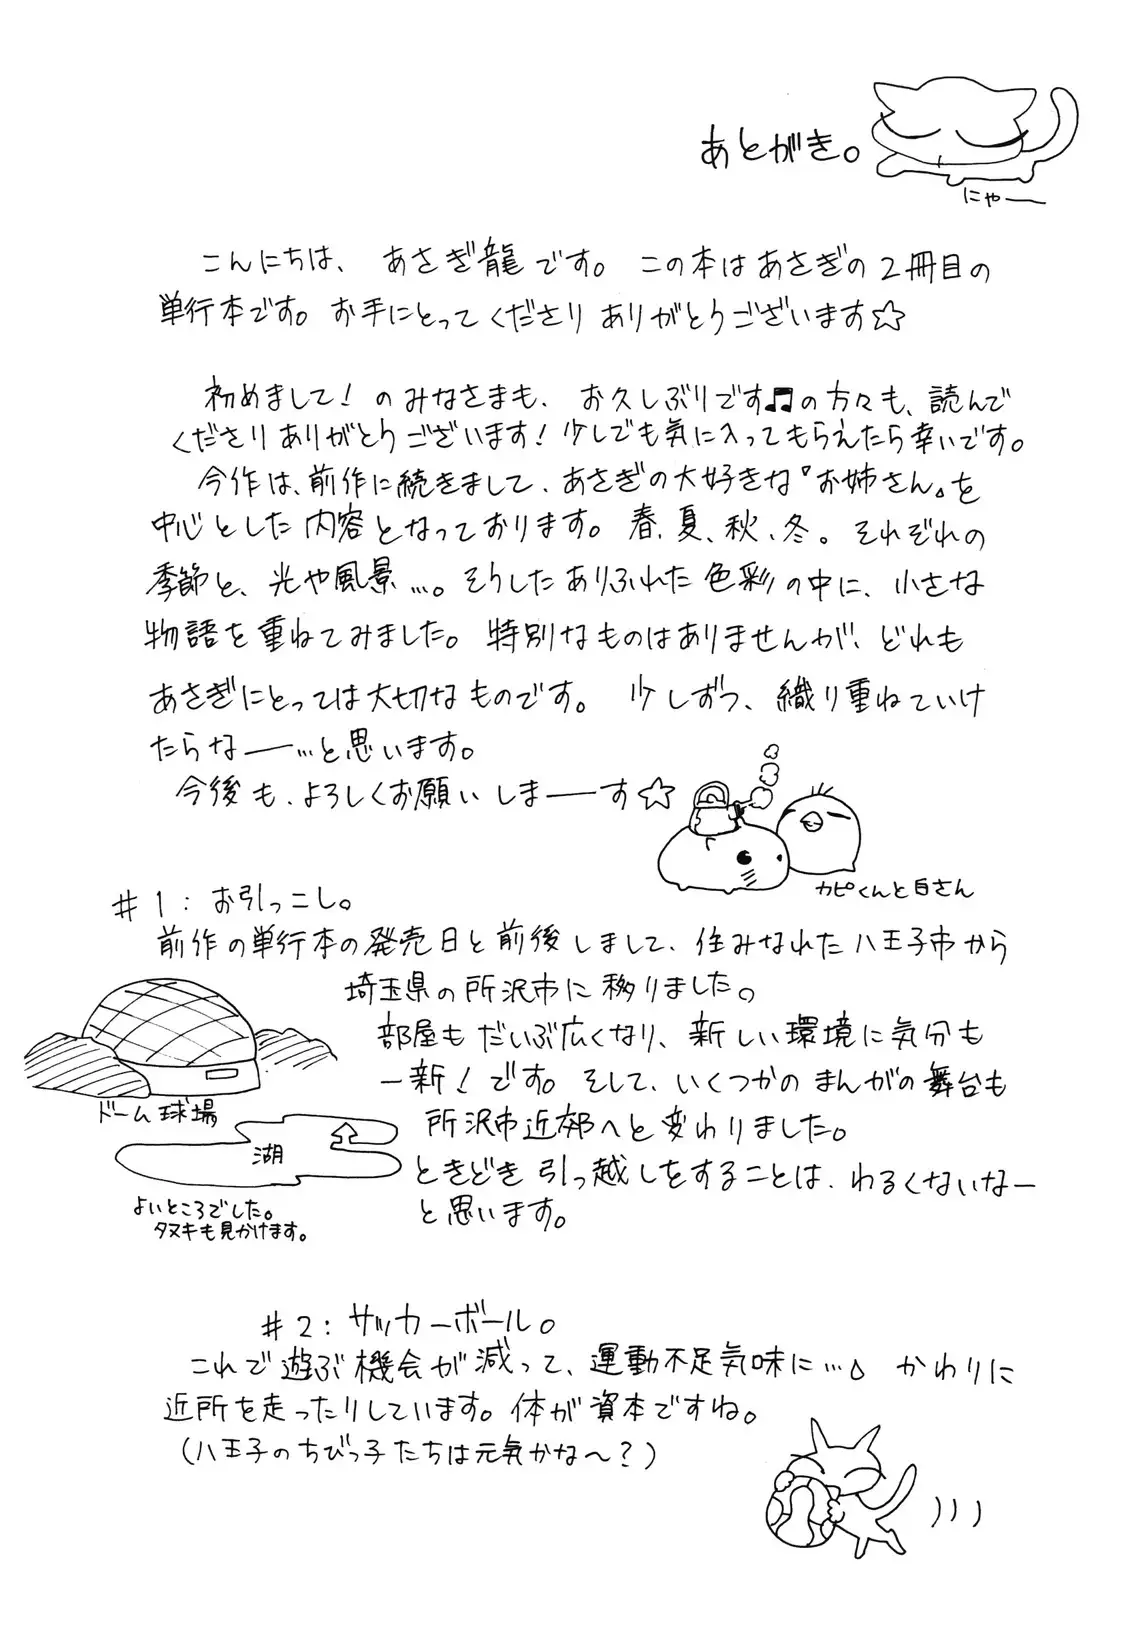 あとがき。
にゃー
こんにちは、あさぎ龍です。この本はあさぎの2冊目の
単行本です。お手にとってくださりありがとうございます☆
初めまして!のみなさまも、お久しぶりです♫の方々も、読んで
くださりありがとうございます!少しでも気に入ってもらえたら幸いです。
今作は、前作に続きまして、あさぎの大好きな『お姉さん』を
中心とした内容となっております。春、夏、秋、冬。それぞれの
季節と、光や風景…。そうしたありふれた色彩の中に、小さな
物語を重ねてみました。特別なものはありませんが、どれも
あさぎにとっては大切なものです。少しずつ、織り重ねていけ
たらなー…と思います。
今後も、よろしくお願いしまーす☆
カピくんと白さん
#1:お引っこし。
前作の単行本の発売日と前後しまして、住みなれた八王子市から
埼玉県の所沢市に移りました。
部屋もだいぶ広くなり、新しい環境に気分も
一新!です。そして、いくつかのまんがの舞台も
所沢市近郊へと変わりました。
ときどき引っ越しをすることは、わるくないなー
と思います。
ドーム球場
湖
よいところでした。
タヌキも見かけます。
#2:サッカーボール。
これで遊ぶ機会が減って、運動不足気味に…。かわりに
近所を走ったりしています。体が資本ですね。
(八王子のちびっ子たちは元気かな〜?)